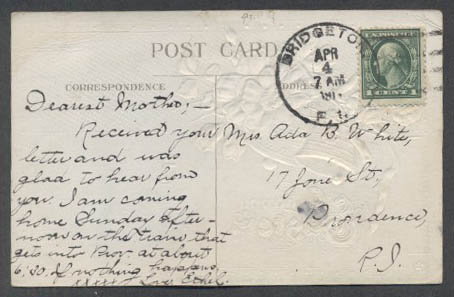 POST CARD
BRIDGETON
APR
4
7 AM
R.I.
U.S. POSTAGE
1 CENT 1
CORRESPONDENCE
Dearest Mother;—
Received your
letter and was
glad to hear from
you. I am coming
home Sunday after-
noon on the train that
gets into Prov. at about
6:30, if nothing happens.
xxxxx Love Ethel.
Mrs. Ada B. White,
17 Jone St,
Providence,
R.I.